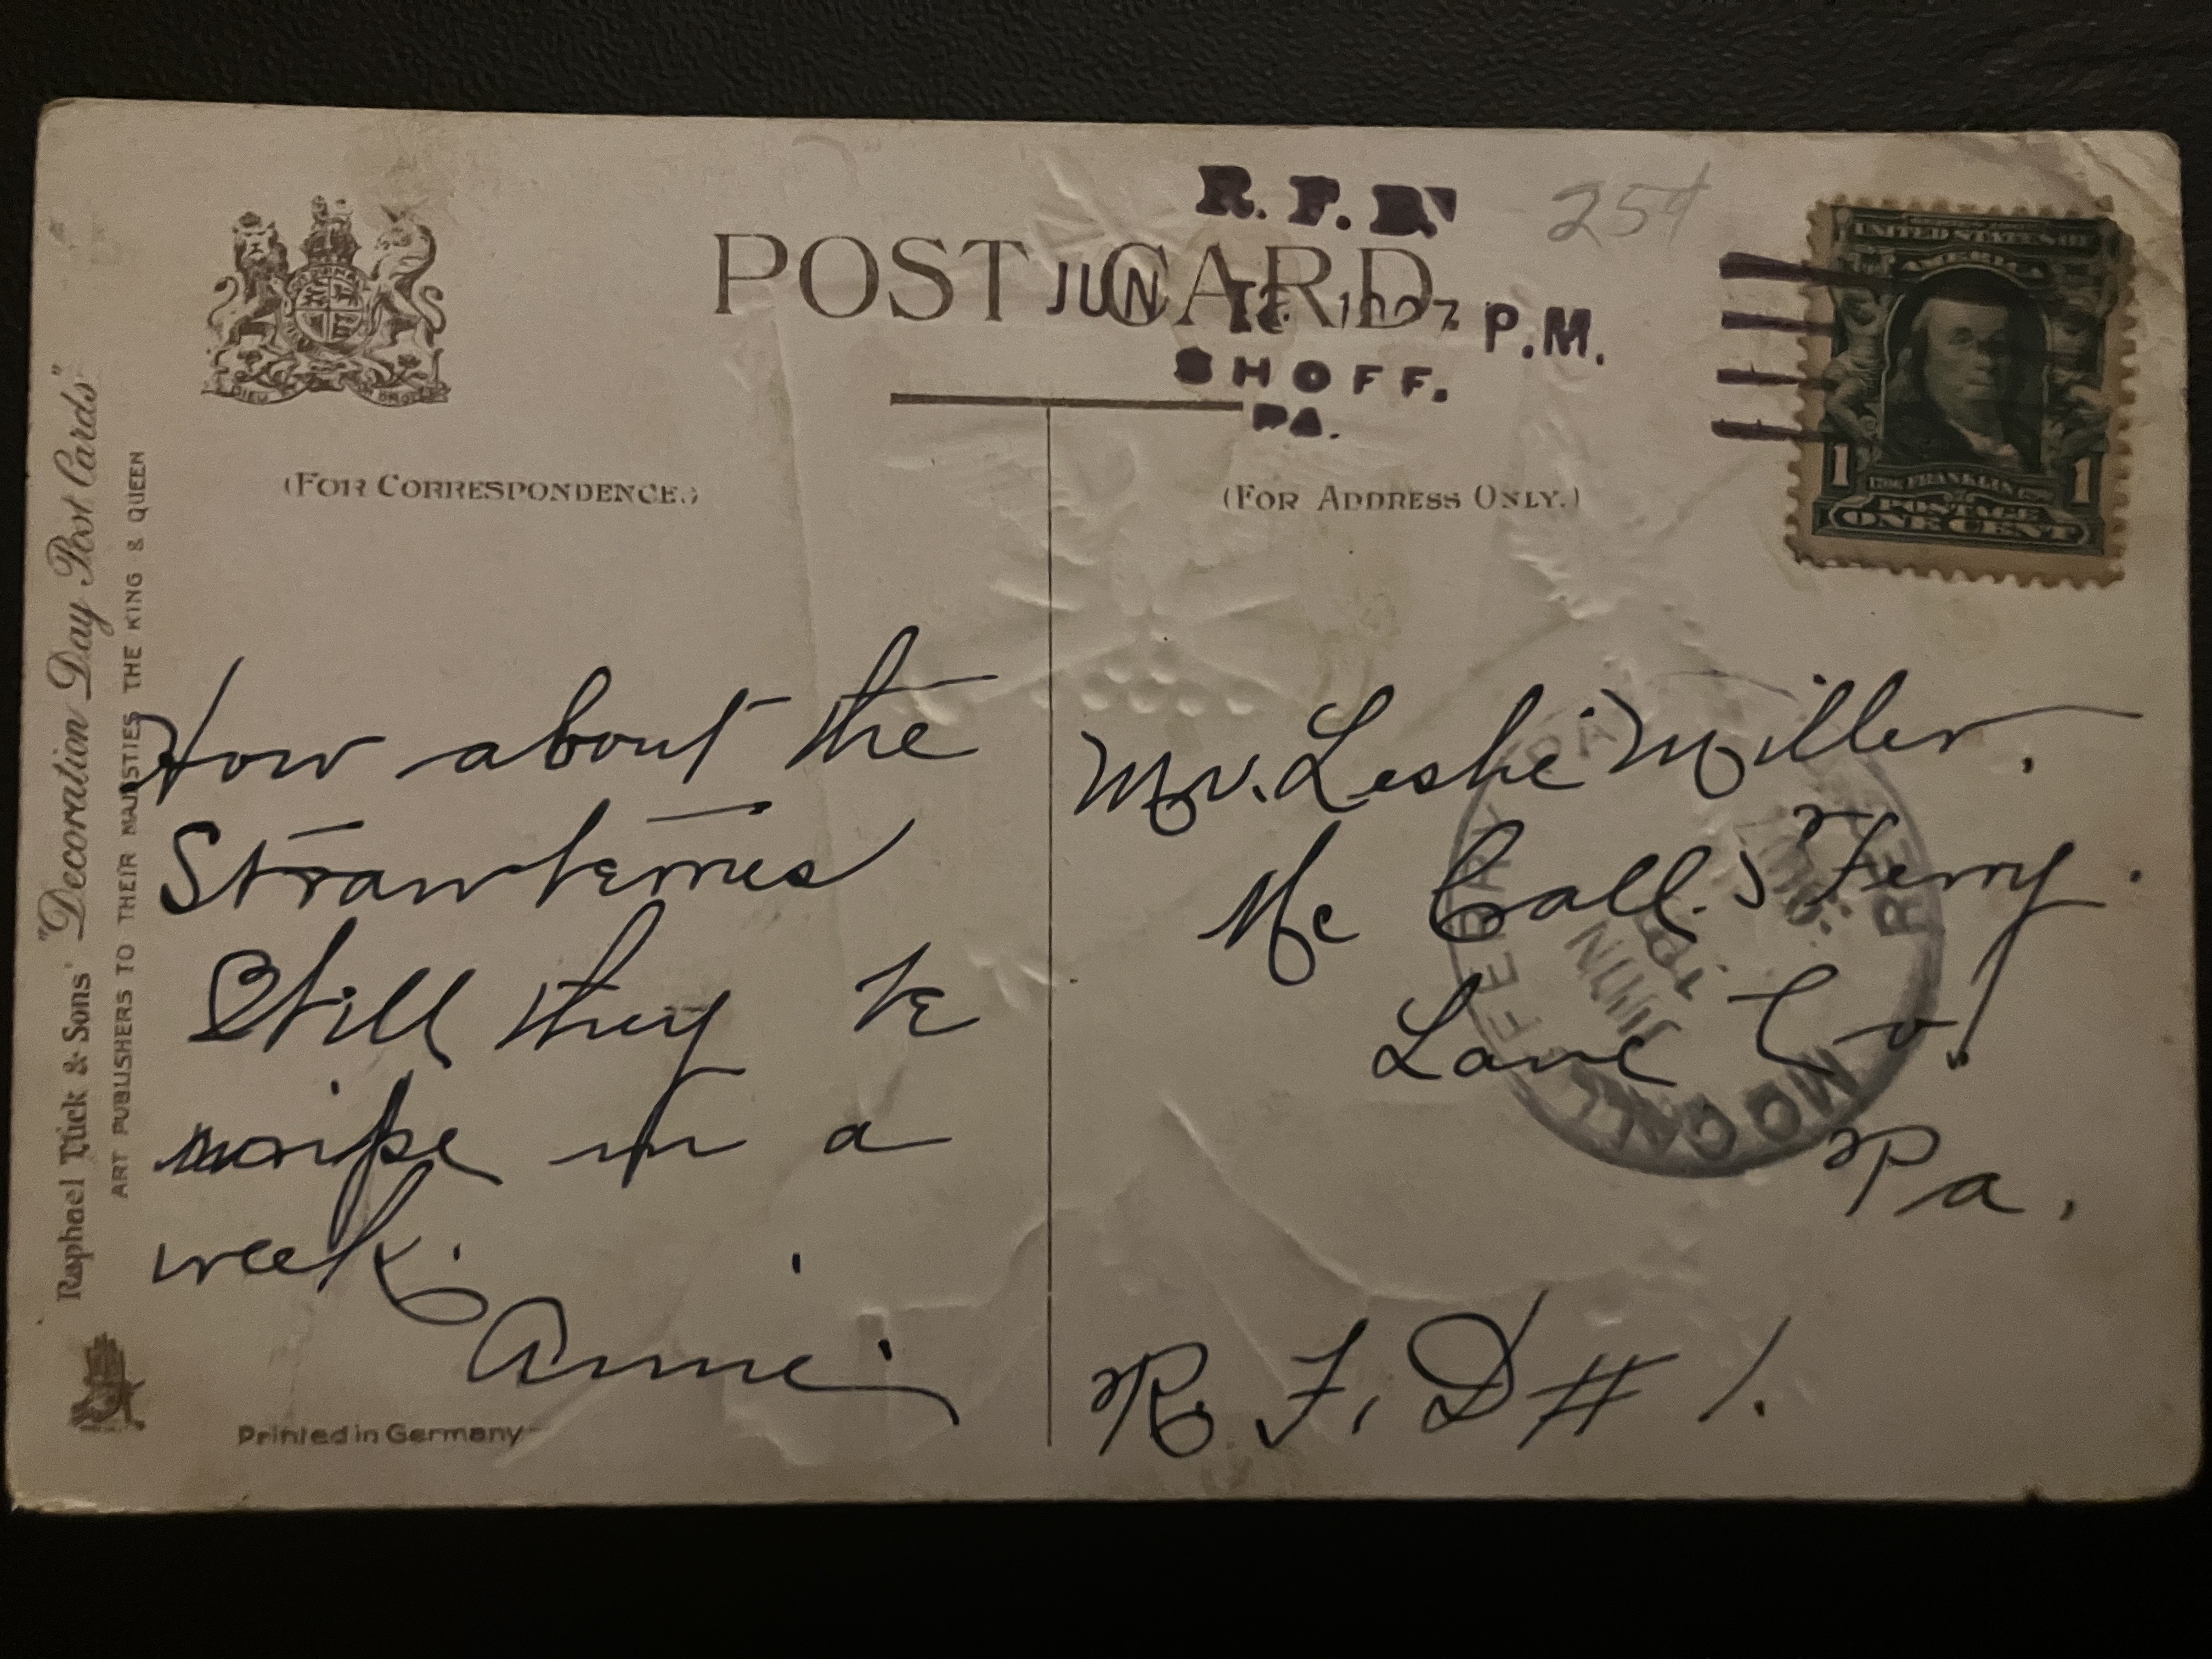 R. F. D.
25¢
UNITED STATES OF
AMERICA
1 FRANKLIN 1
POSTAGE
ONE CENT
POST CARD
JUN 1907 P.M.
SHOFF.
PA.
DIEU ET MON DROIT
(FOR CORRESPONDENCE.)
(FOR ADDRESS ONLY.)
Raphael Tuck & Sons' "Decoration Day Post Cards"
ART PUBLISHERS TO THEIR MAJESTIES THE KING & QUEEN
How about the
Strawberries
Still they be
ripe in a
week.
Annie
Mr. Leslie Miller.
Mc Call's Ferry.
Lanc Co.
Pa.
R. F. D # 1.
MCCALL FERRY PA.
REC'D
JUN
Printed in Germany